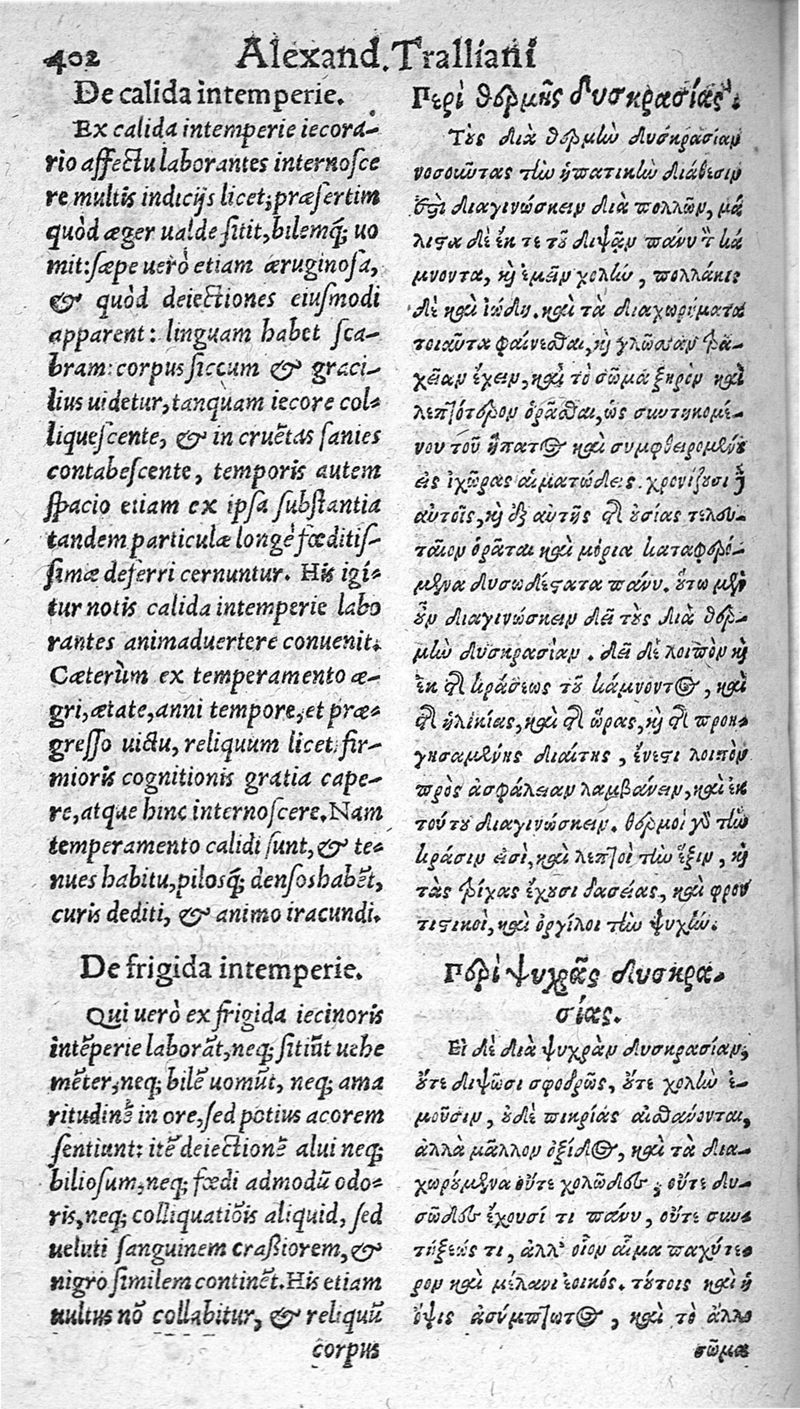 402
Alexand. Tralliani
De calida intemperie.
Ex calida intemperie iecora-
rio affectu laborantes internosce
re multis indicijs licet; præsertim
quòd æger ualde sitit, bilemq́; uo
mit: sæpe uerò etiam æruginosa,
& quòd deiectiones eiusmodi
apparent: linguam habet sca-
bram: corpus siccum & graci-
lius uidetur, tanquam iecore col-
liquescente, & in cruẽtas sanies
contabescente, temporis autem
spacio etiam ex ipsa substantia
tandem particulæ longè fœditis-
simæ deferri cernuntur. His igi-
tur notis calida intemperie labo
rantes animaduertere conuenit.
Cæterùm ex temperamento æ-
gri, ætate, anni tempore, et præ-
gresso uictu, reliquum licet fir-
mioris cognitionis gratia cape-
re, atque hinc internoscere. Nam
temperamento calidi sunt, & te-
nues habitu, pilosq́; densos habẽt,
curis dediti, & animo iracundi.
De frigida intemperie.
Qui uerò ex frigida iecinoris
intẽperie laborãt, neq; sitiũt uehe
mẽter, neq; bilẽ uomũt, neq; ama
ritudinẽ in ore, sed potius acorem
sentiunt: itẽ deiectionẽ alui neq;
biliosum, neq; fœdi admodũ odo-
ris, neq; colliquatiõis aliquid, sed
ueluti sanguinem crassiorem, &
nigro similem continẽt. His etiam
uultus nõ collabitur, & reliquũ
corpus
Περὶ θερμῆς δυσκρασίας.
Τοὺς διὰ θερμὴν δυσκρασίαν
νοσοῦντας τὴν ἡπατικὴν διάθεσιν
ἔστι διαγινώσκειν διὰ πολλῶν, μά
λιστα δὲ ἔκ τε τοῦ διψᾷν πάνυ τὸν κά
μνοντα, καὶ ἐμεῖν χολὴν, πολλάκις
δὲ καὶ ἰώδη. καὶ τὰ διαχωρήματα
τοιαῦτα φαίνεσθαι, καὶ γλῶσσαν τρα-
χεῖαν ἔχειν, καὶ τὸ σῶμα ξηρὸν καὶ
λεπτότερον ὁρᾶσθαι, ὡς συντηκομέ-
νου τοῦ ἥπατος καὶ συμφθειρομένου
εἰς ἰχῶρας αἱματώδεις. χρονίζουσι δὲ
αὐτοῖς, καὶ ἐξ αὐτῆς τῆς οὐσίας τελευ-
ταῖον ὁρᾶται καὶ μόρια καταφερό-
μενα δυσωδέστατα πάνυ. οὕτω μὲν
οὖν διαγινώσκειν δεῖ τοὺς διὰ θερ-
μὴν δυσκρασίαν. δεῖ δὲ λοιπὸν καὶ
ἐκ τῆς κράσεως τοῦ κάμνοντος, καὶ
τῆς ἡλικίας, καὶ τῆς ὥρας, καὶ τῆς προη-
γησαμένης διαίτης, ἔνεστι λοιπὸν
πρὸς ἀσφάλειαν λαμβάνειν, καὶ ἐκ
τούτου διαγινώσκειν. θερμοὶ γὰρ τὴν
κρᾶσιν εἰσὶ, καὶ λεπτοὶ τὴν ἕξιν, καὶ
τὰς τρίχας ἔχουσι δασείας, καὶ φρον
τιστικοὶ, καὶ ὀργίλοι τὴν ψυχήν.
Περὶ ψυχρᾶς δυσκρα-
σίας.
Εἰ δὲ διὰ ψυχρὰν δυσκρασίαν,
οὔτε διψῶσι σφοδρῶς, οὔτε χολὴν ἐ-
μοῦσιν, οὐδὲ πικρίας αἰσθάνονται,
ἀλλὰ μᾶλλον ὀξίδος, καὶ τὰ δια-
χωρούμενα οὔτε χολῶδες, οὔτε δυ-
σῶδες ἔχουσί τι πάνυ, οὔτε συν-
τήξεώς τι, ἀλλ' οἷον αἷμα παχύτε-
ρον καὶ μέλανι ἐοικός. τούτοις καὶ ἡ
ὄψις ἀσύμπτωτος, καὶ τὸ ἄλλο
σῶμα